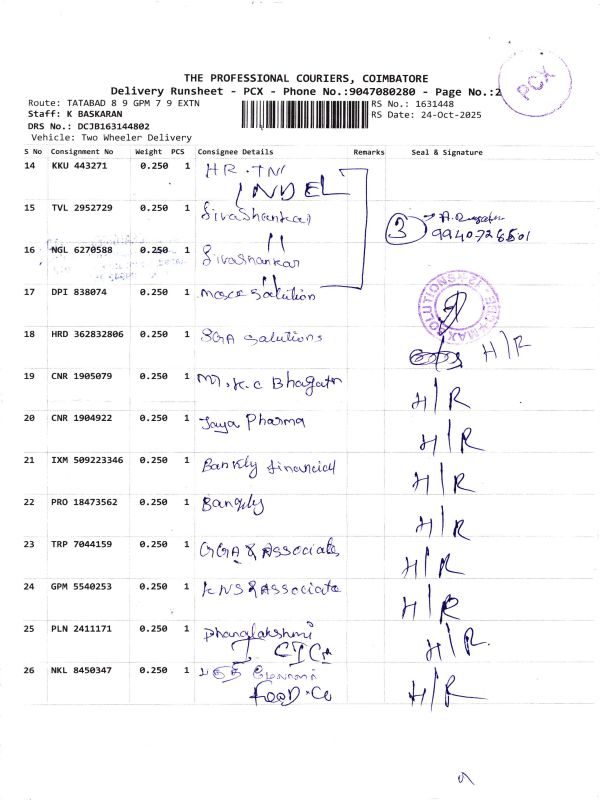 PCX
THE PROFESSIONAL COURIERS, COIMBATORE
Delivery Runsheet - PCX - Phone No.:9047080280 - Page No.:2
Route: TATABAD 8 9 GPM 7 9 EXTN RS No.: 1631448
Staff: K BASKARAN RS Date: 24-Oct-2025
DRS No.: DCJB163144802
Vehicle: Two Wheeler Delivery
S No Consignment No Weight PCS Consignee Details Remarks Seal & Signature
14 KKU 443271 0.250 1 HR. TN
INDEL
15 TVL 2952729 0.250 1 SivaShankar
3 9940728501
16 NGL 6270588 0.250 1 Sivashankar
17 DPI 838074 0.250 1 Solution
18 HRD 362832806 0.250 1 SGA Solutions H/R
19 CNR 1905079 0.250 1 Mr. K.C Bhagath H/R
20 CNR 1904922 0.250 1 Jaya Pharma H/R
21 IXM 509223346 0.250 1 Bankly financial H/R
22 PRO 18473562 0.250 1 H/R
23 TRP 7044159 0.250 1 GGA & Associates H/R
24 GPM 5540253 0.250 1 KNS & Associate H/R
25 PLN 2411171 0.250 1 Dhanalakshmi H/R
26 NKL 8450347 0.250 1 H/R
FOOD. Co